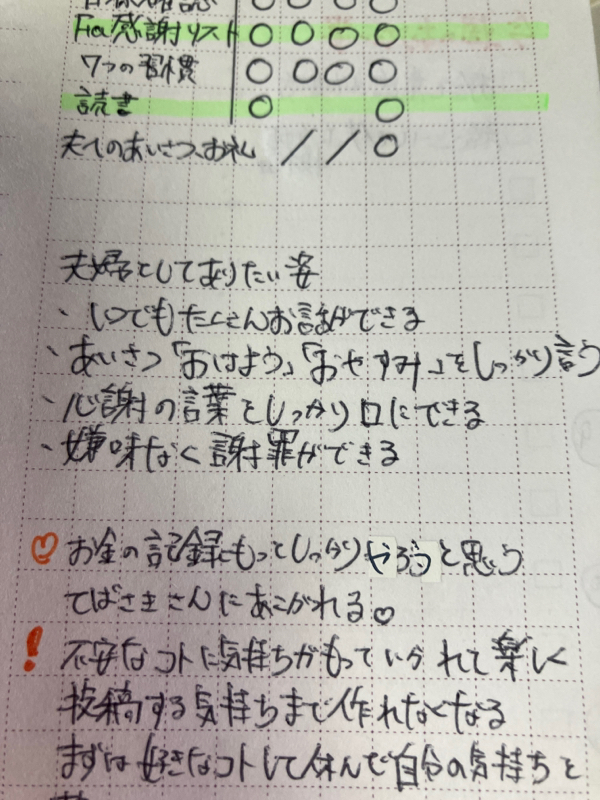 感謝リスト ○ ○ ○ ○
7つの習慣 ○ ○ ○ ○
読書 ○ ○
夫へのあいさつ、お礼 / / ○
夫婦としてありたい姿
・いつでもたくさんお話ができる
・あいさつ「おはよう」「おやすみ」をしっかり言う
・心謝の言葉としっかり口にできる
・嫌味なく謝罪ができる
♡ お金の記録もっとしっかりやろうと思う
てばさきさんにあこがれる♡
! 不安なコトに気持ちがもっていかれて楽しく
投稿する気持ちまで作れなくなる
まずは好きなコトして休んで自分の気持ちと